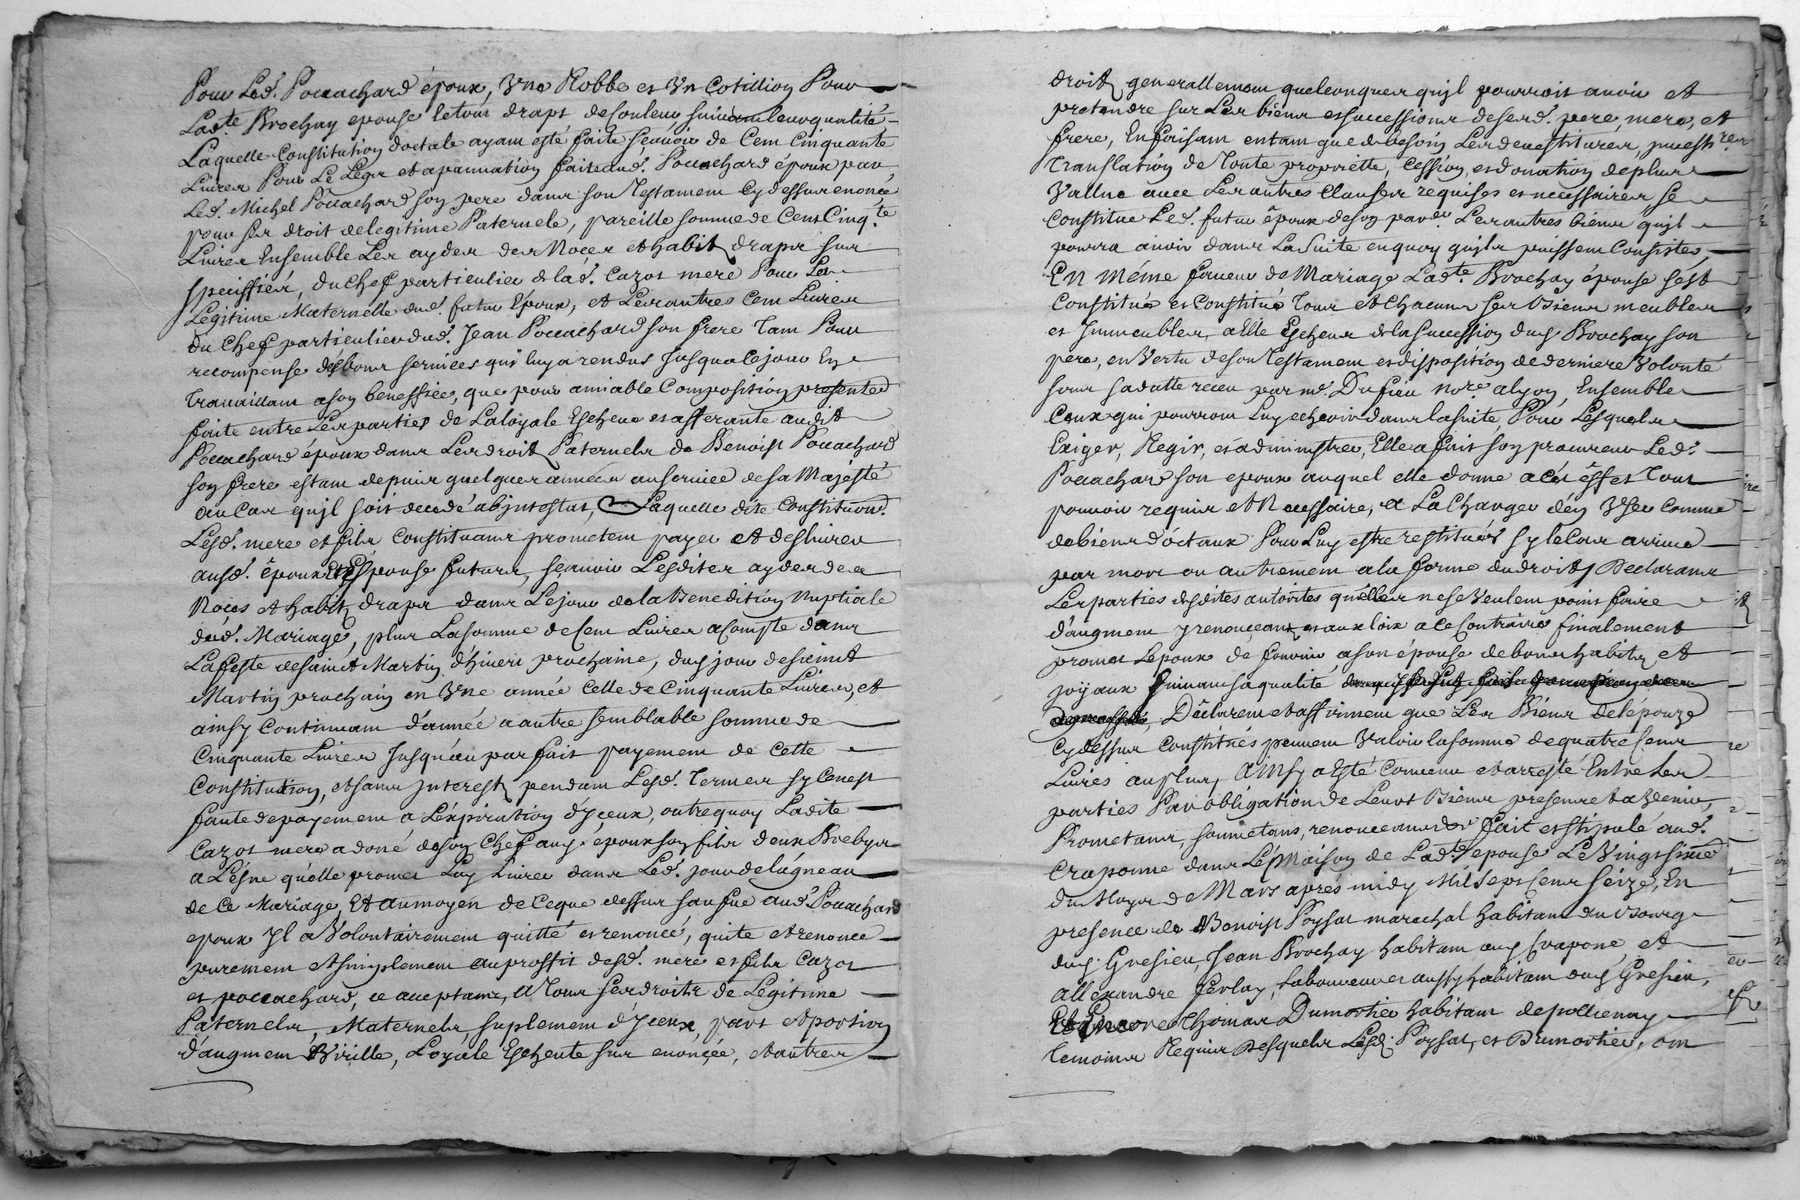 Pour Led. Pocachard époux, Vne Robbe et Vn Cotillion Pour
Ladte Brochay epouse letout draps de couleur suivant leur qualité
Laquelle Constitution doctale ayant esté faite sçavoir de Cent Cinquante
Livres Pour Le Legs et apannation faite aud. Pocachard époux par
Led. Michel Pocachard son pere dans son Testament Cy dessus enoncé
pour ses droit delegitime Paternele, pareille somme de Cent Cinqte
Livres Ensemble Les ayder des Noces et habit draps sus
speciffiés, du chef particulier de lad. Cazot mere Pour La
Legitime Maternelle dud. futur Epoux, et Les autres Cent Livres
du Chef particulier dud. Jean Pocachard son frere Tant Pour
recompense desbons services qu'il luy a rendus Jusqua cejour En
Travaillant ason beneffice, que pour amiable Composition presente
faite entre Les parties de Laloyale Escheue et afferante audit
Pocachard époux dans Les droit Paternels de Benoist Pocachard
son frere estant depuis quelques années au service de sa Majesté
au Cas quil soit decedé abjntestat, Laquelle dite Constitution
Lesd. mere et fils Constituans prometent payer et deslivrer
ausd. époux et Espouse futurs, sçavoir Lesdites ayder des
Noces et habit draps dans Lejour de la Benedition Nuptiale
dud. Mariage, plus La somme de Cent Livres a Compte dans
La feste de saint Martin d'hivert prochaine, dud jour de saint
Martin prochain en Vne année Celle de Cinquante Livres, et
ainsy Continuant d'année a autre semblable somme de
Cinquante Livres Jusqu'au parfait payement de Cette
Constitution, et sans Jnterest pendant Lesd. Termes sy Cenest
faute de payement a L'expiration d'yceux, outre quoy Ladite
Cazot mere a doné de son Chef aud. époux son fils deux Brebys
a L'esne qu'elle promet Luy Livrer dans Led. jour
de Ce Mariage, Et au moyen de Ceque dessus sauf ue aud. Pocachard
époux Jl a Volontairement quitté et renoncé, quite et renonce
purement et simplement au proffit desd. mere et fils Cazot
et pocachard, ce acceptant, a Tous ses droits de Legitime
Paternels, Maternels suplement d'yceux, part et portion
d'augment Virille, Loyale Escheute sus enoncée, et autres
droit generallement quelconques quil pourroit avoir et
pretendre sur Les biens et successions desesd. pere, mere, et
frere, En faisant entant que de besoin Les devestitures, jnvestres
Translation de Toute propriette, Cession, et donation de plus
Vallue avec Les autres Clauses requises et necessaires se
Constitue Led. futur époux de son par der Les autres biens quil
pourra avoir dans La suite en quoy quils puissent Consister,
En Même faveur de Mariage Ladte Brochay épouse sest
Constitué et Constitué Tous et chacuns ses Biens meubles
et Jmmeubles, a Elle Escheus de la succession dud Brochay son
pere, en Vertu de son Testament et disposition de derniere Volonté
sous sa datte receu par me. Dufieu nore. alyon, Ensemble
Ceux qui pourront Luy echeoir dans la suite, Pour Lesquels
Exiger, Regir, et administrer, Elle a fait son procureur Led.
Pocachard son époux auquel elle donne acét éffet Tout
pouvoir requis et Necessaire, a La Charge den Vser Comme
de biens d'octaux Pour Luy estre restitués sy le Cas arrive
par mort ou autrement a la forme du droit, Declarans
Les parties desdites autorités quélles ne se Veulent point faire
d'augment y renonceant et aux loix a ce Contraires finalement
promet Lepoux de fournir a son épouse de bons habits et
joyaux suivant sa qualité
Déclarent et affirment que Les Biens de lepouze
Cy dessus Constitués peuvent Valoir la somme de quatre Cens
Livres au plus, Ainsy a Esté Convenu et arresté Entre Les
parties Par obligation de Leurs Biens presens et a Venir,
Prometans, soumetans, renonceans &c fait et stipulé aud.
Craponne dans Maison de Ladte epouse Le Vingtsixie
du Moys de Mars après midy Mil Sept Cent Seize, En
presence de Benoist Poysat marechal habitant du Bourg
dud. Gresieu, Jean Brochay habitant aud Crapone, et
Allexandre Ferlay, Laboureur et aussy habitant dud Gresieu,
Et Encore Thomas Dumortier habitant de pollienay
Temoins Requis Desquels Lesd. Poysat, et Dumortier, ont